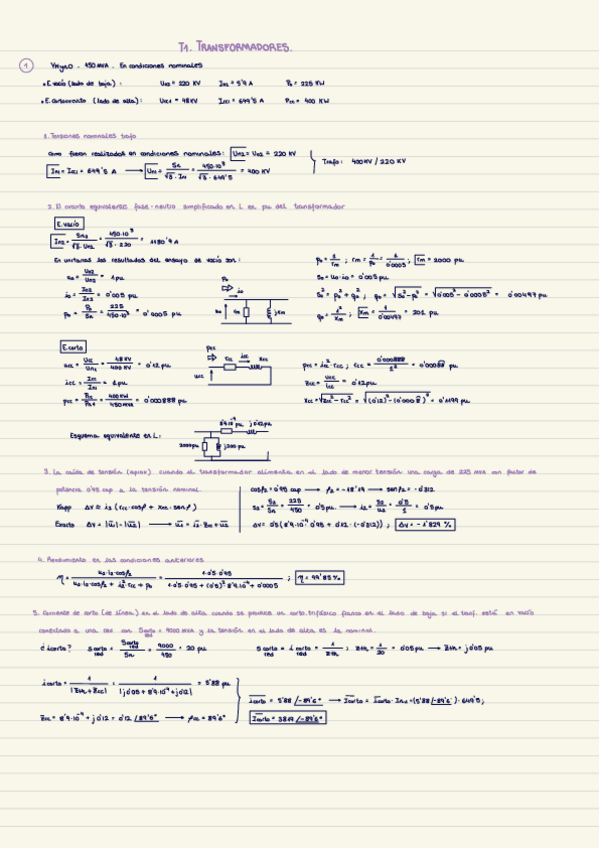 T1. TRANSFORMADORES.
1 YNyn0 - 450 MVA. En condiciones nominales
• E. vacío (lado de baja): U02 = 220 KV I02 = 5'9 A P0 = 225 KW
• E. cortocircuito (lado de alta): Ucc1 = 48KV Icc1 = 649'5 A Pcc = 400 KW
1. Tensiones nominales trafo
como fueron realizados en condiciones nominales: Un2 = U02 = 220 KV
I1N = Icc1 = 649'5 A → U1N = Sn / √3 · In = 450·10³ / √3 · 649'5 = 400 KV
Trafo: 400KV / 220 KV
2. El circuito equivalente fase-neutro simplificado en L en pu del transformador
E. vacío
In2 = Sn2 / √3 · Un2 = 450·10³ / √3 · 220 = 1180'9 A
En unitarias los resultados del ensayo de vacío son:
u0 = U02 / Un2 = 1 pu
i0 = I02 / In2 = 0'005 pu
p0 = P0 / Sn = 225 / 450·10³ = 0'0005 pu
p0 = 1 / rm ; rm = 1 / p0 = 1 / 0'0005 ; rm = 2000 pu
s0 = u0 · i0 = 0'005 pu
s0² = p0² + q0² ; q0 = √s0² - p0² = √0'005² - 0'0005² = 0'00497 pu
q0 = 1 / xm ; xm = 1 / 0'00497 = 201 pu
E. corto
ucc = Ucc / Un1 = 48KV / 400KV = 0'12 pu
icc = Icc / In = 1 pu
pcc = Pcc / Sn = 400KW / 450MVA = 0'000888 pu
pcc = icc² · rcc ; rcc = 0'000888 / 1² = 0'00088 pu
zcc = ucc / icc = 0'12 pu
xcc = √zcc² - rcc² = √(0'12)² - (0'0008)² = 0'1199 pu
Esquema equivalente en L:
8'9·10⁻⁴ pu j0'12 pu
2000 pu j200 pu
3. La caída de tensión (aprox) cuando el transformador alimenta en el lado de menor tensión una carga de 225 MVA con factor de
potencia 0'95 cap a la tensión nominal.
Kapp ΔV ≈ i2 (rcc · cosφ + xcc · senφ)
Exacto ΔV = |u1| - |u2| → u1 = i2 · zcc + u2
cosφ2 = 0'95 cap → φ2 = -18'19 → senφ2 = -0'312
s2 = S2 / Sn = 225 / 450 = 0'5 pu → i2 = s2 / u2 = 0'5 / 1 = 0'5 pu
ΔV = 0'5 (8'9·10⁻⁴ · 0'95 + 0'12 · (-0'312)) ; ΔV = -1'829 %
4. Rendimiento en las condiciones anteriores
η = u2·i2·cosφ2 / u2·i2·cosφ2 + i2²·rcc + p0 = 1·0'5·0'95 / 1·0'5·0'95 + (0'5)²·8'9·10⁻⁴ + 0'0005 ; η = 99'85 %
5. Corriente de corto (de línea) en el lado de alta cuando se produce un corto trifásico franco en el lado de baja si el tranf. está en vacío
conectado a una red con Scorto red = 9000 MVA y la tensión en el lado de alta es la nominal.
¿ icorto? Scorto red = Scorto red / Sn = 9000 / 450 = 20 pu
Scorto red = icorto red = 1 / Zth ; Zth = 1 / 20 = 0'05 pu → Zth = j0'05 pu
icorto = 1 / |Zth + Zcc| = 1 / |j0'05 + 8'9·10⁻⁴ + j0'12| = 5'88 pu
Zcc = 8'9·10⁻⁴ + j0'12 = 0'12 /89'5° → φcc = 89'6°
icorto = 5'88 /-89'6° → Icorto = icorto · In1 = (5'88 /-89'6°) · 649'5 ;
Icorto = 3819 /-89'6°